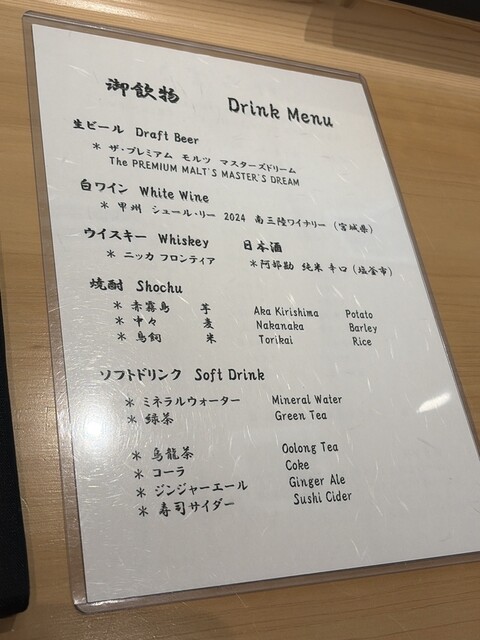 御飲物 Drink Menu
生ビール Draft Beer
* ザ・プレミアム モルツ マスターズドリーム
The PREMIUM MALT'S MASTER'S DREAM
白ワイン White Wine
* 甲州 シュール・リー 2024 南三陸ワイナリー (宮城県)
ウイスキー Whiskey 日本酒
* ニッカ フロンティア *阿部勘 純米 辛口 (塩釜市)
焼酎 Shochu
* 赤霧島 芋 Aka Kirishima Potato
* 中々 麦 Nakanaka Barley
* 鳥飼 米 Torikai Rice
ソフトドリンク Soft Drink
* ミネラルウォーター Mineral Water
* 緑茶 Green Tea
* 烏龍茶 Oolong Tea
* コーラ Coke
* ジンジャーエール Ginger Ale
* 寿司サイダー Sushi Cider